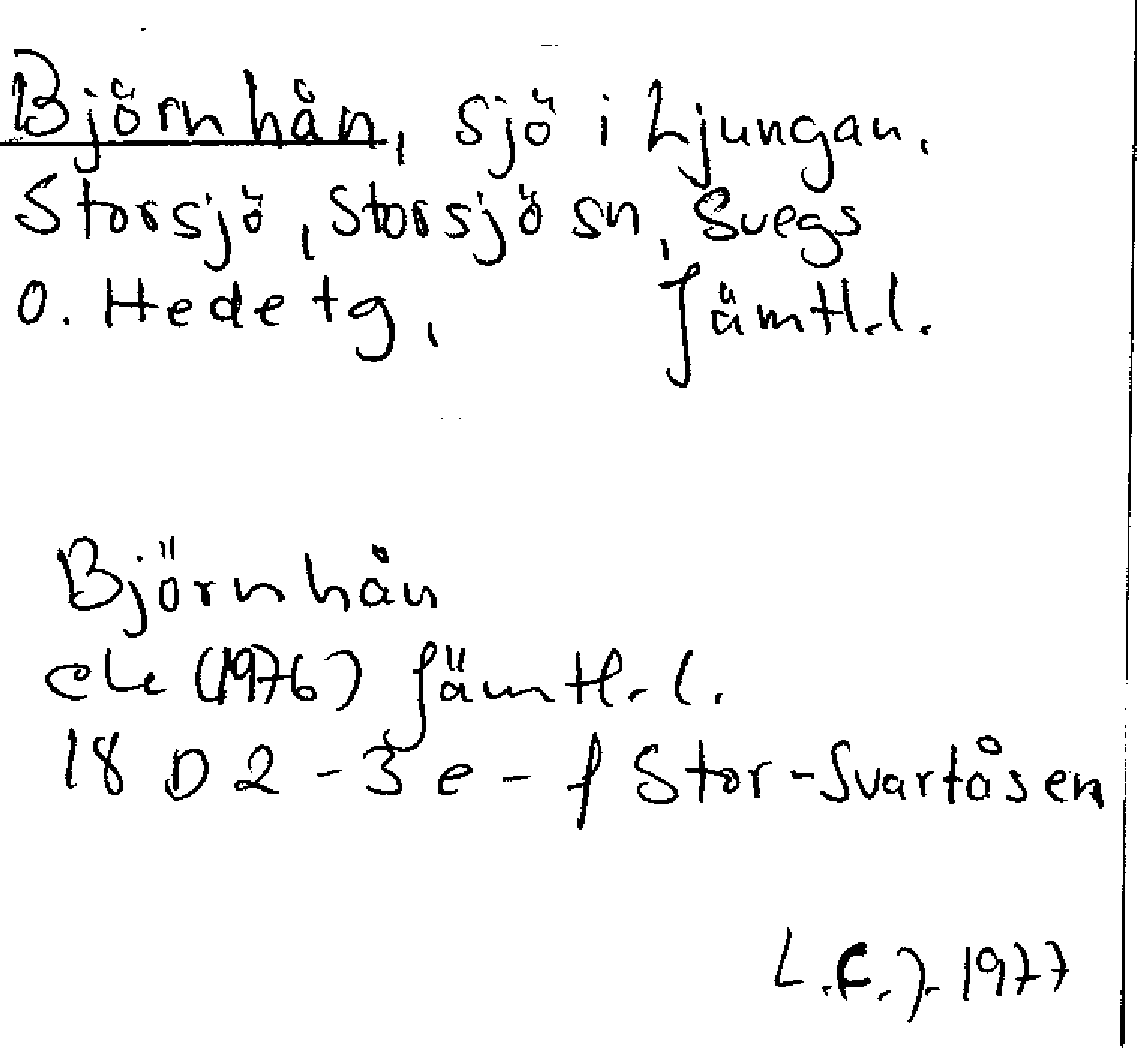 Björnhån, sjö i Ljungan.
Storsjö, Storsjö sn, Svegs
o. Hede tg, Jämtl.l.
Björnhån
ek (1976) Jämtl.l.
18 D 2-3 e-f Stor-Svartåsen
L.E.J. 1977